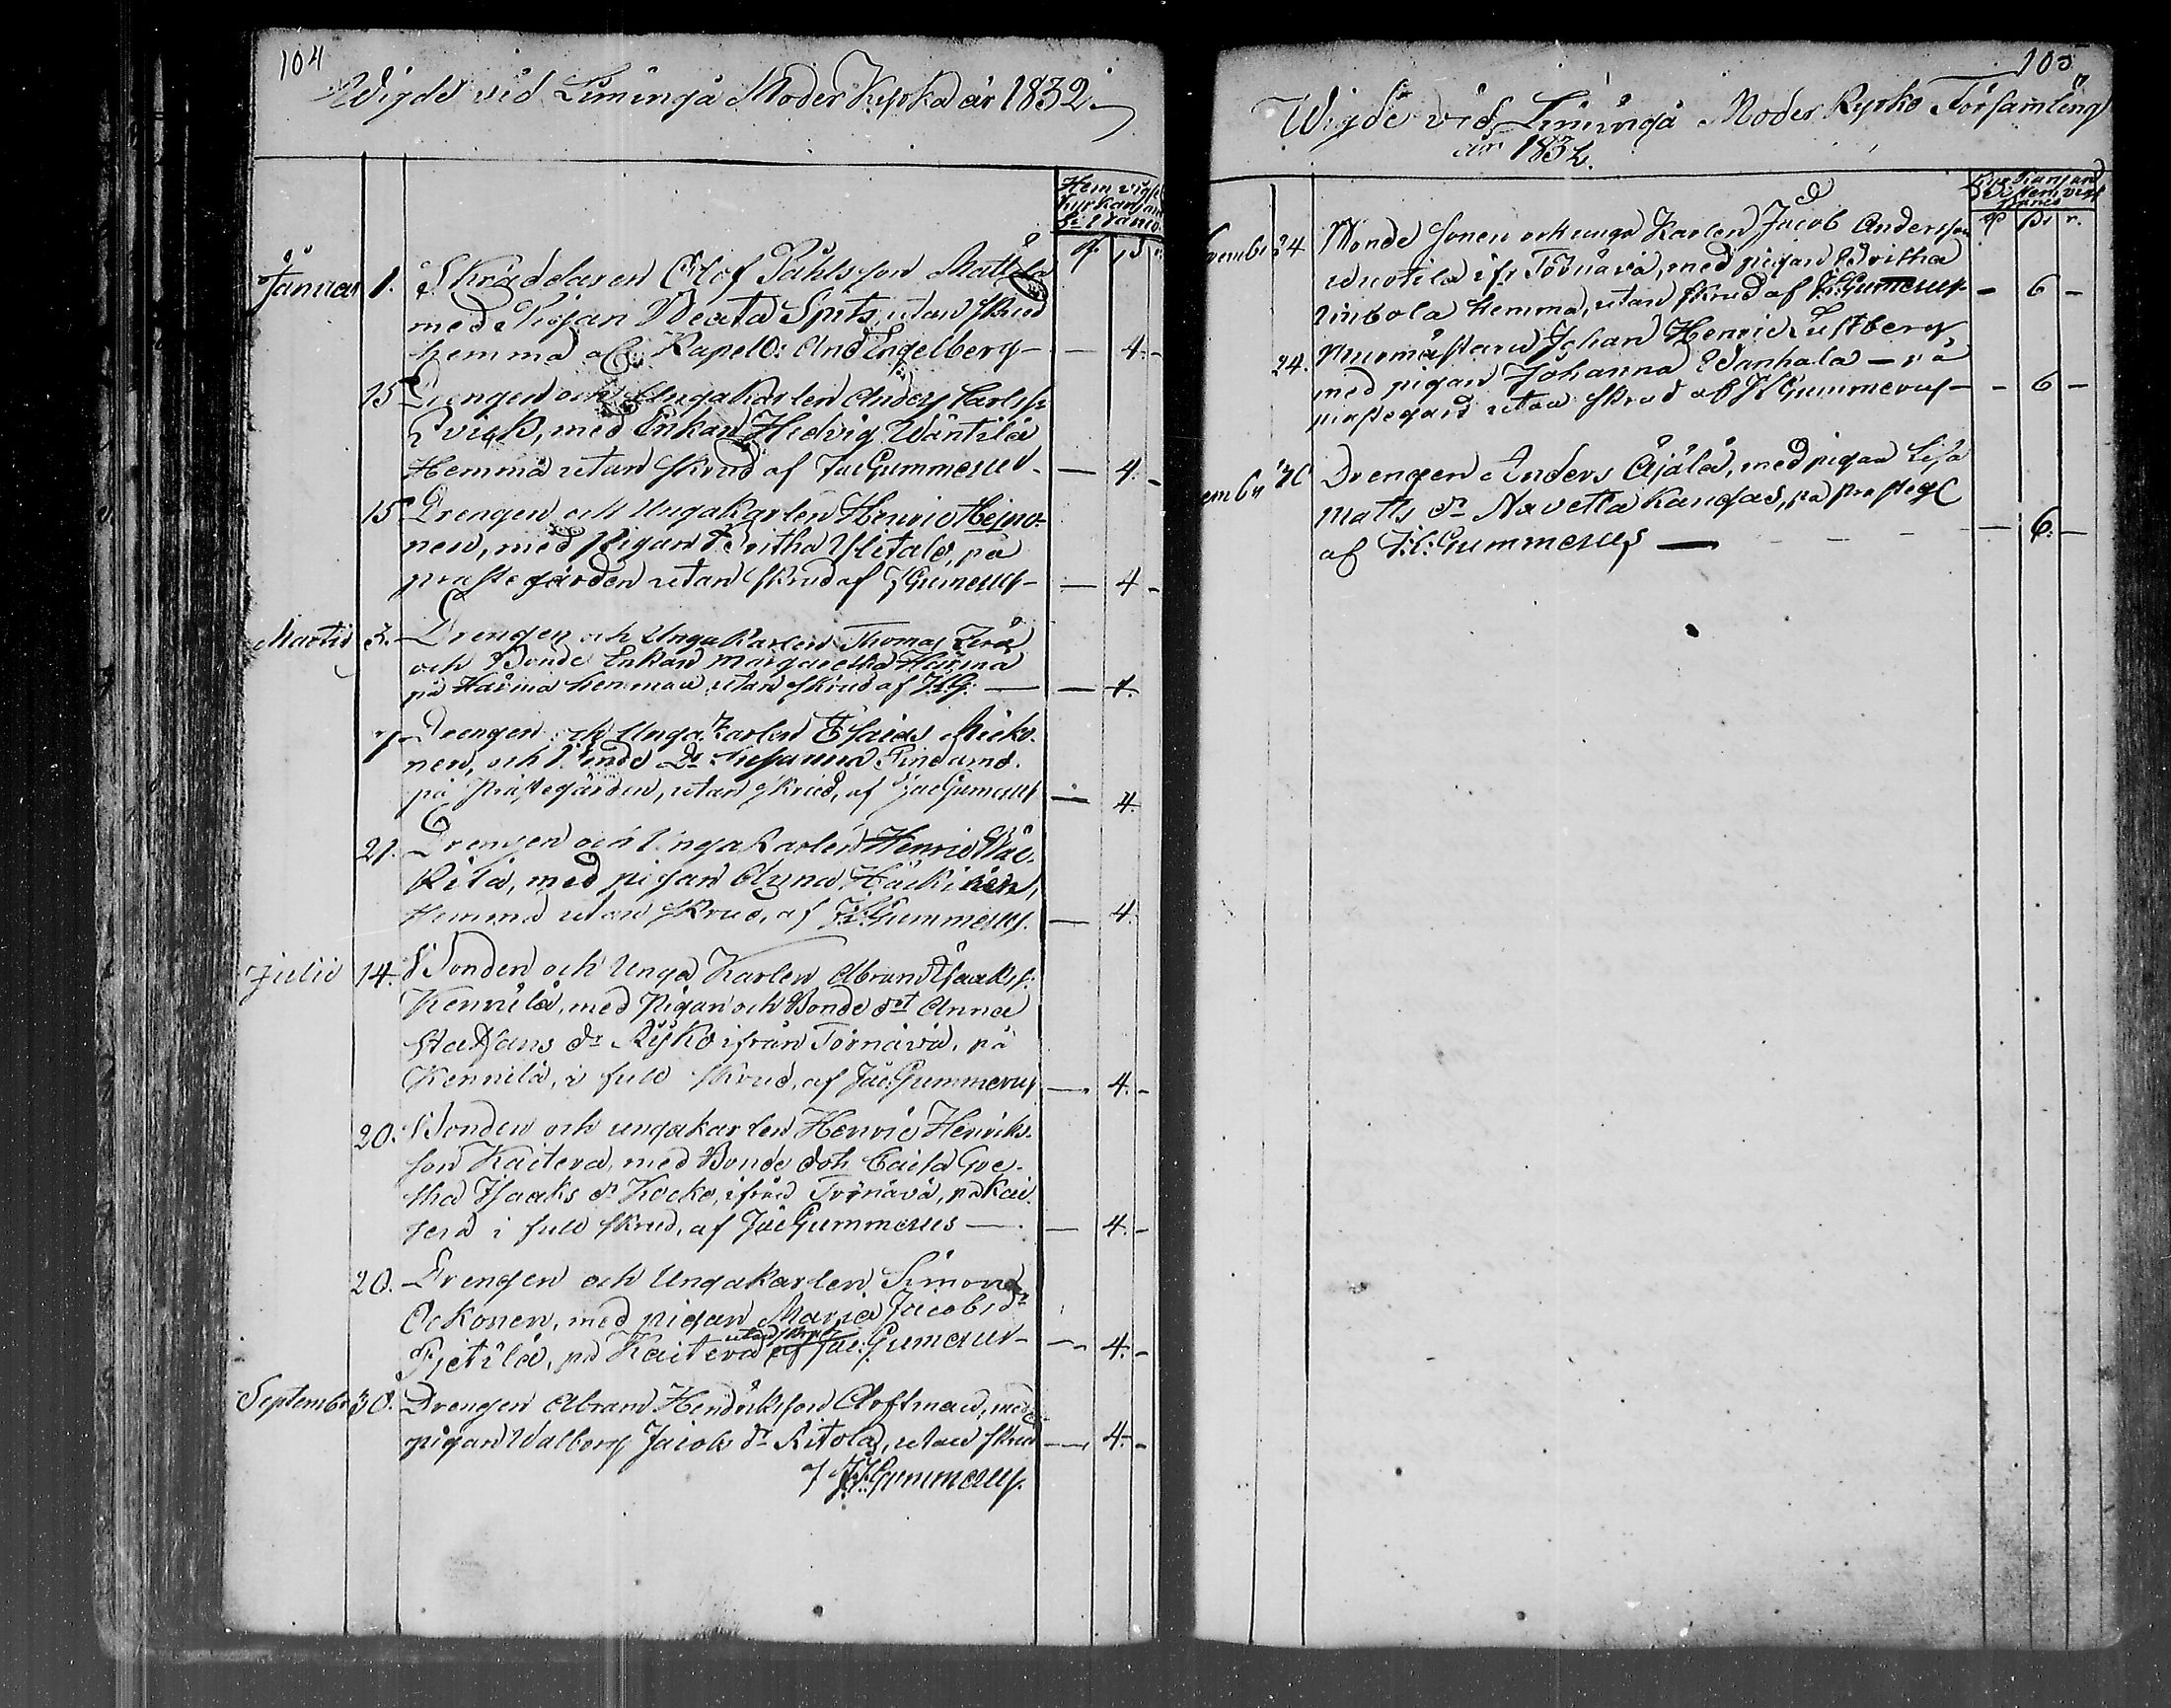 104
Wigde vid Limingå Moder Kyrka år 1832.
Hem vigsel
Kyrkan
Januari 1. Skräddaren Olof Påhlsson Mattila
med Pigan Beata Spits, utan skrud
hemma af Kapell: And Engelberg — — 4. -
15 Drengen och Ungakarlen Anders Carlss:
Qvick, med Enkan Hedvig Wäntilä
Hemma utan skrud af Jac Gummerus — 4. -
15 Drengen och Ungakarlen Henric Heino-
nen, med Pigan Britha Ylitalo, på
prästegården utan skrud af J Gumerus — 4 -
Martii 2. Drengen och Ungakarlen Thomas
och Bonde Enkan Margaretha Härmä
på Härmä hemman utan skrud af J.G. — — 4.
7. Drengen och Unga Karlen Esaias Micko-
nen, och Bonde Dr Susanna
på Prästegården, utan skrud, af Jac Gumerus — 4.
21. Drengen och Unga Karlen Henric
kilä, med pigan Anna Häckinen,
Hemma utan skrud, af J: Gummerus. — 4.
Julii 14. Bonden och Unga Karlen Abram Isaakss:
Kennilä, med Pigan och Bonde dot Anna
Staffans dr Ryskö ifrån Törnävä, på
Kennilä, i full skrud, af Jac: Gummerus — 4. -
20. Bonden och ungakarlen Henric Henriks-
son Kaitera, med Bonde doh Caisa Gre-
tha Isaaks dr Kocko, ifrån Törnävä, på Kai-
tera i full skrud, af Jac Gummerus — — 4. -
20. Drengen och Ungakarlen Simon
Ockonen, med pigan Maria Jacobs dr
utan skrud
Pjetilä, på Kaitera af Jac: Gumerus — — 4. -
September 30. Drengen Abram Hendriksson Hoffman, med
pigan Walborg Jacobs dr Ritola, utan skrud — 4. -
af J: Gummerus.
105
Wigde vid Limingå Moder Kyrko Församling
år 1832.
vember 24 Bonde Sonen och unga Karlen Jacob Andersson
ifr Törnävä, med pigan Britha
hemma, utan skrud af J: Gummerus — - 6 -
24. Murmästaren Johan Henric Lustberg
med pigan Johanna Wanhala — på
prästegård utan skrud af J: Gummerus — - 6 -
ember 26 Drengen Anders Äjälä, med pigan Lisa
Matts dr Navettakangas, på prästeg
af J: Gummerus — — 6. -